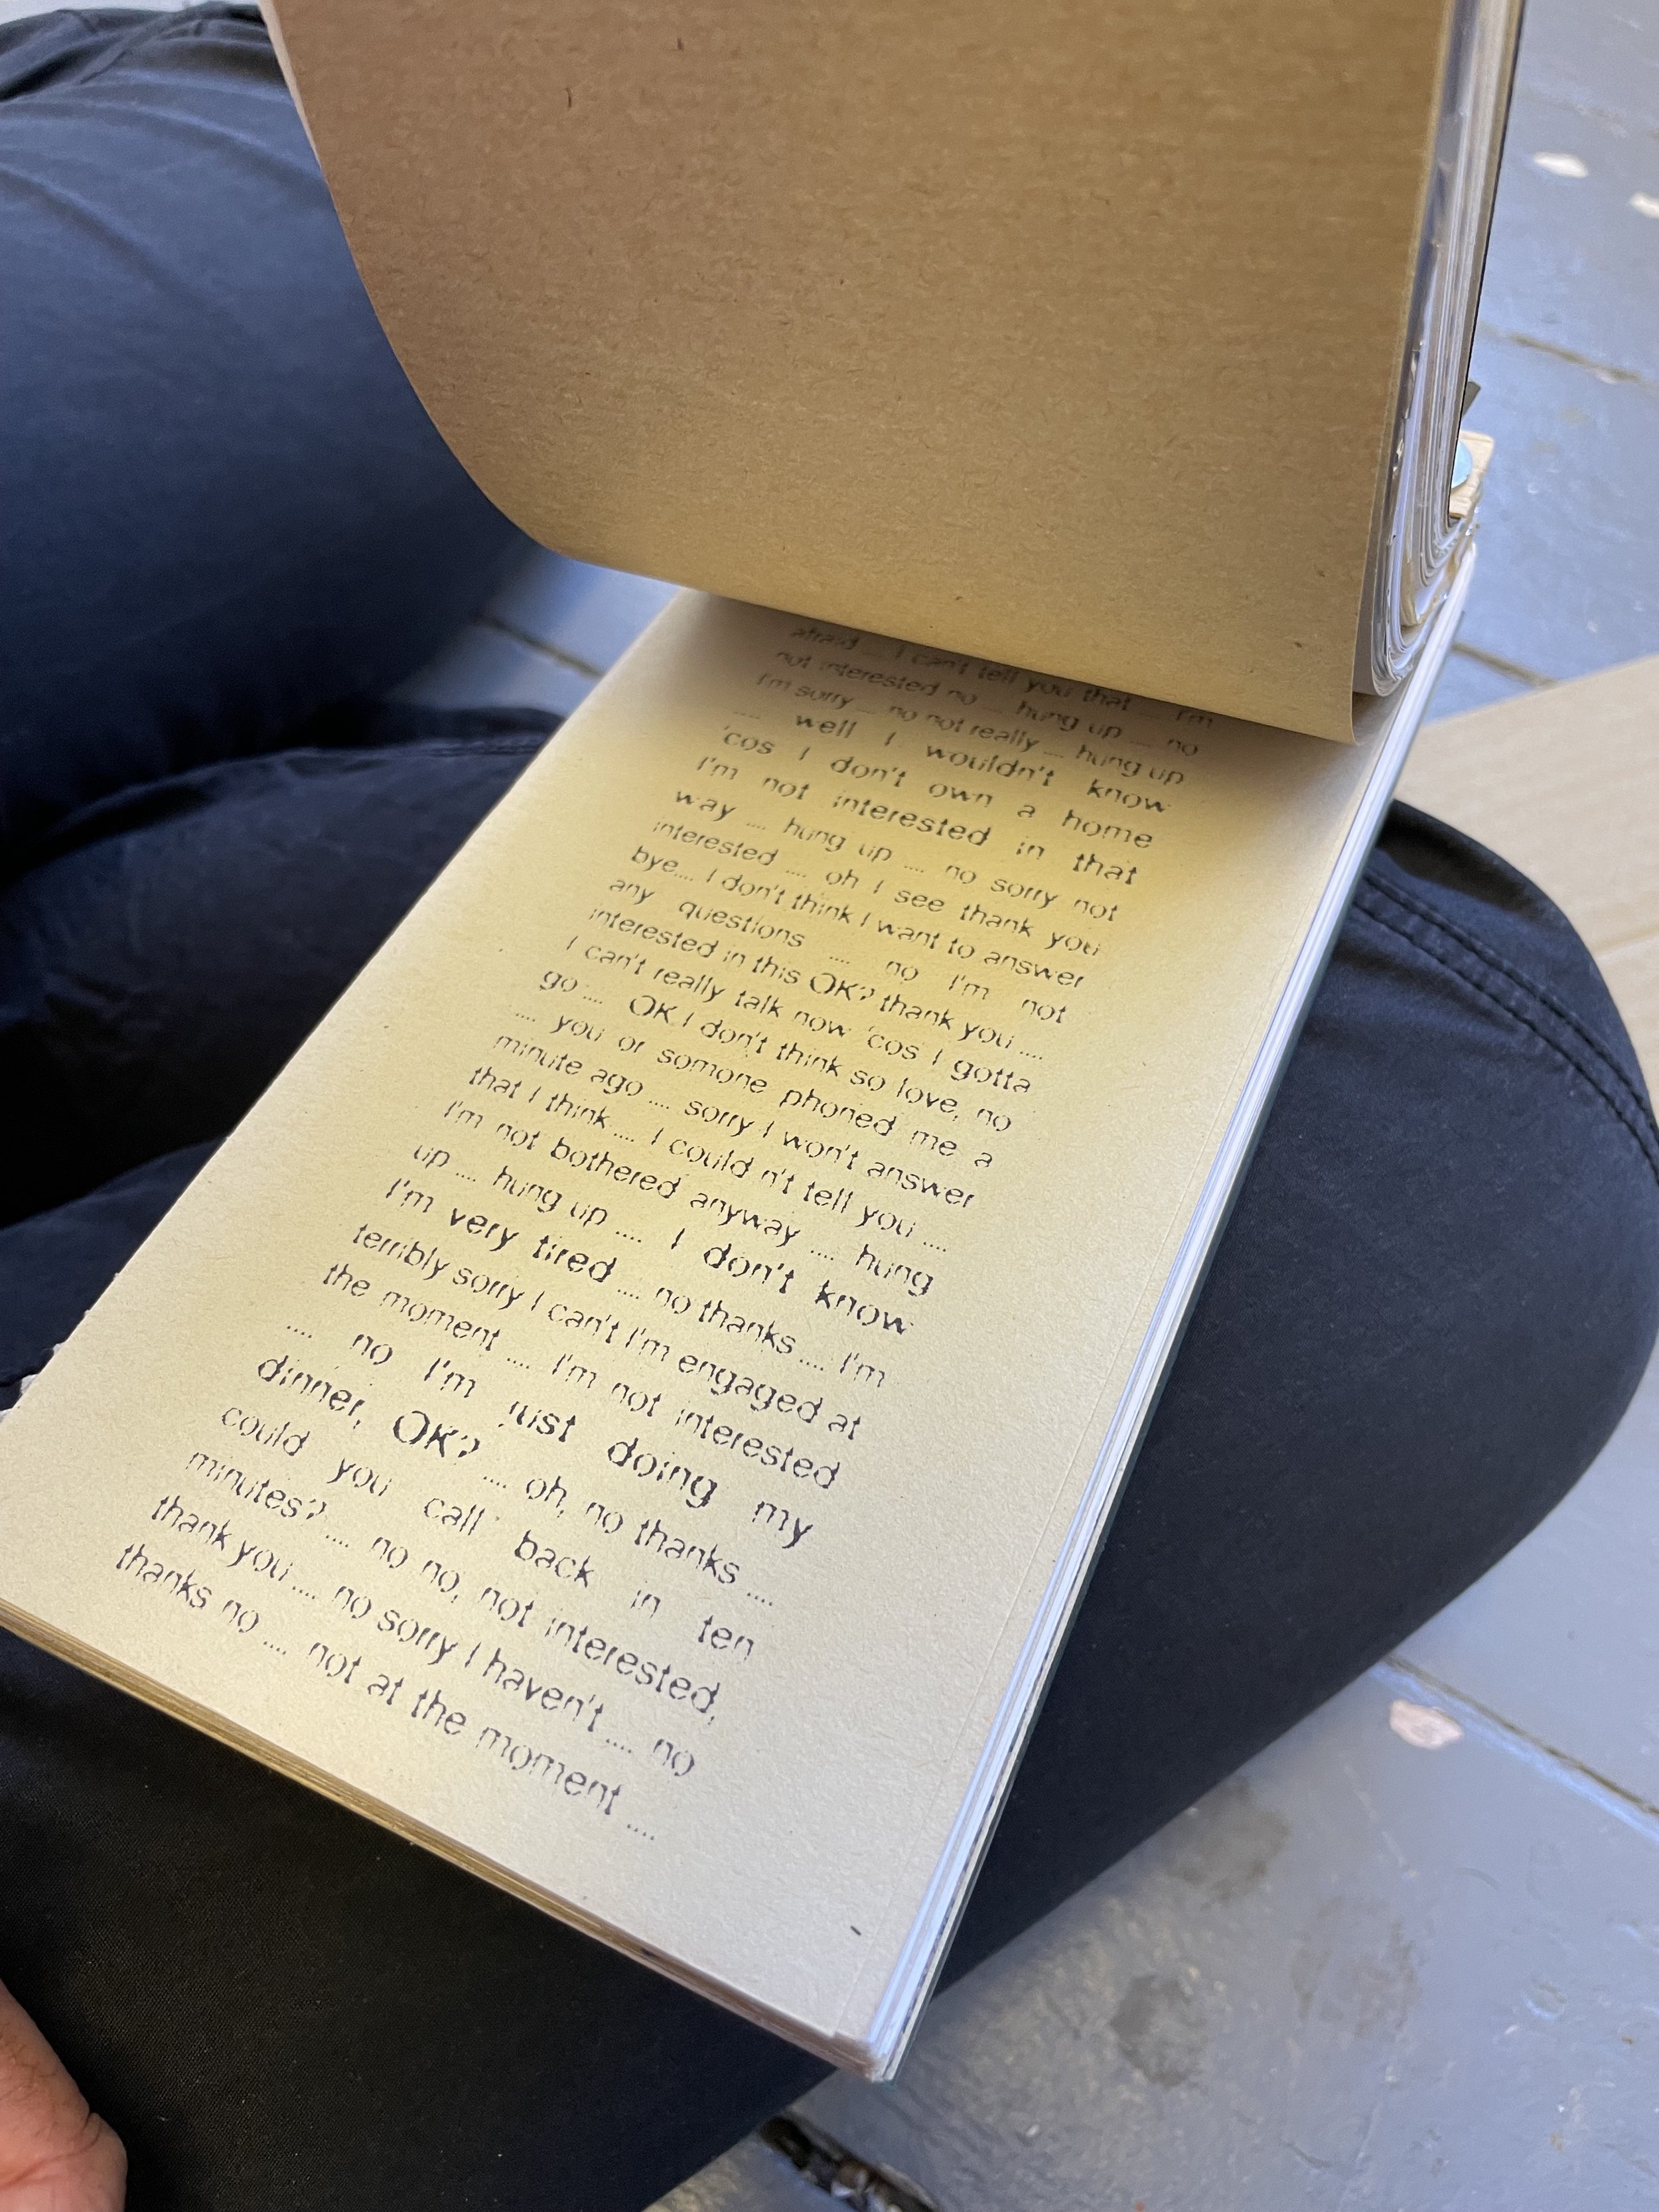 afraid .... I can't tell you that .... I'm
not interested no .... hung up .... no
I'm sorry .... no not really .... hung up
.... well I wouldn't know
'cos I don't own a home
I'm not interested in that
way .... hung up .... no sorry not
interested .... oh I see thank you
bye.... I don't think I want to answer
any questions .... no I'm not
interested in this OK? thank you ....
I can't really talk now 'cos I gotta
go .... OK I don't think so love, no
.... you or somone phoned me a
minute ago .... sorry I won't answer
that I think .... I could n't tell you ....
I'm not bothered anyway .... hung
up .... hung up .... I don't know
I'm very tired .... no thanks .... I'm
terribly sorry I can't I'm engaged at
the moment .... I'm not interested
.... no I'm just doing my
dinner, OK? .... oh, no thanks ....
could you call back in ten
minutes? .... no no, not interested,
thank you .... no sorry I haven't .... no
thanks no .... not at the moment ....